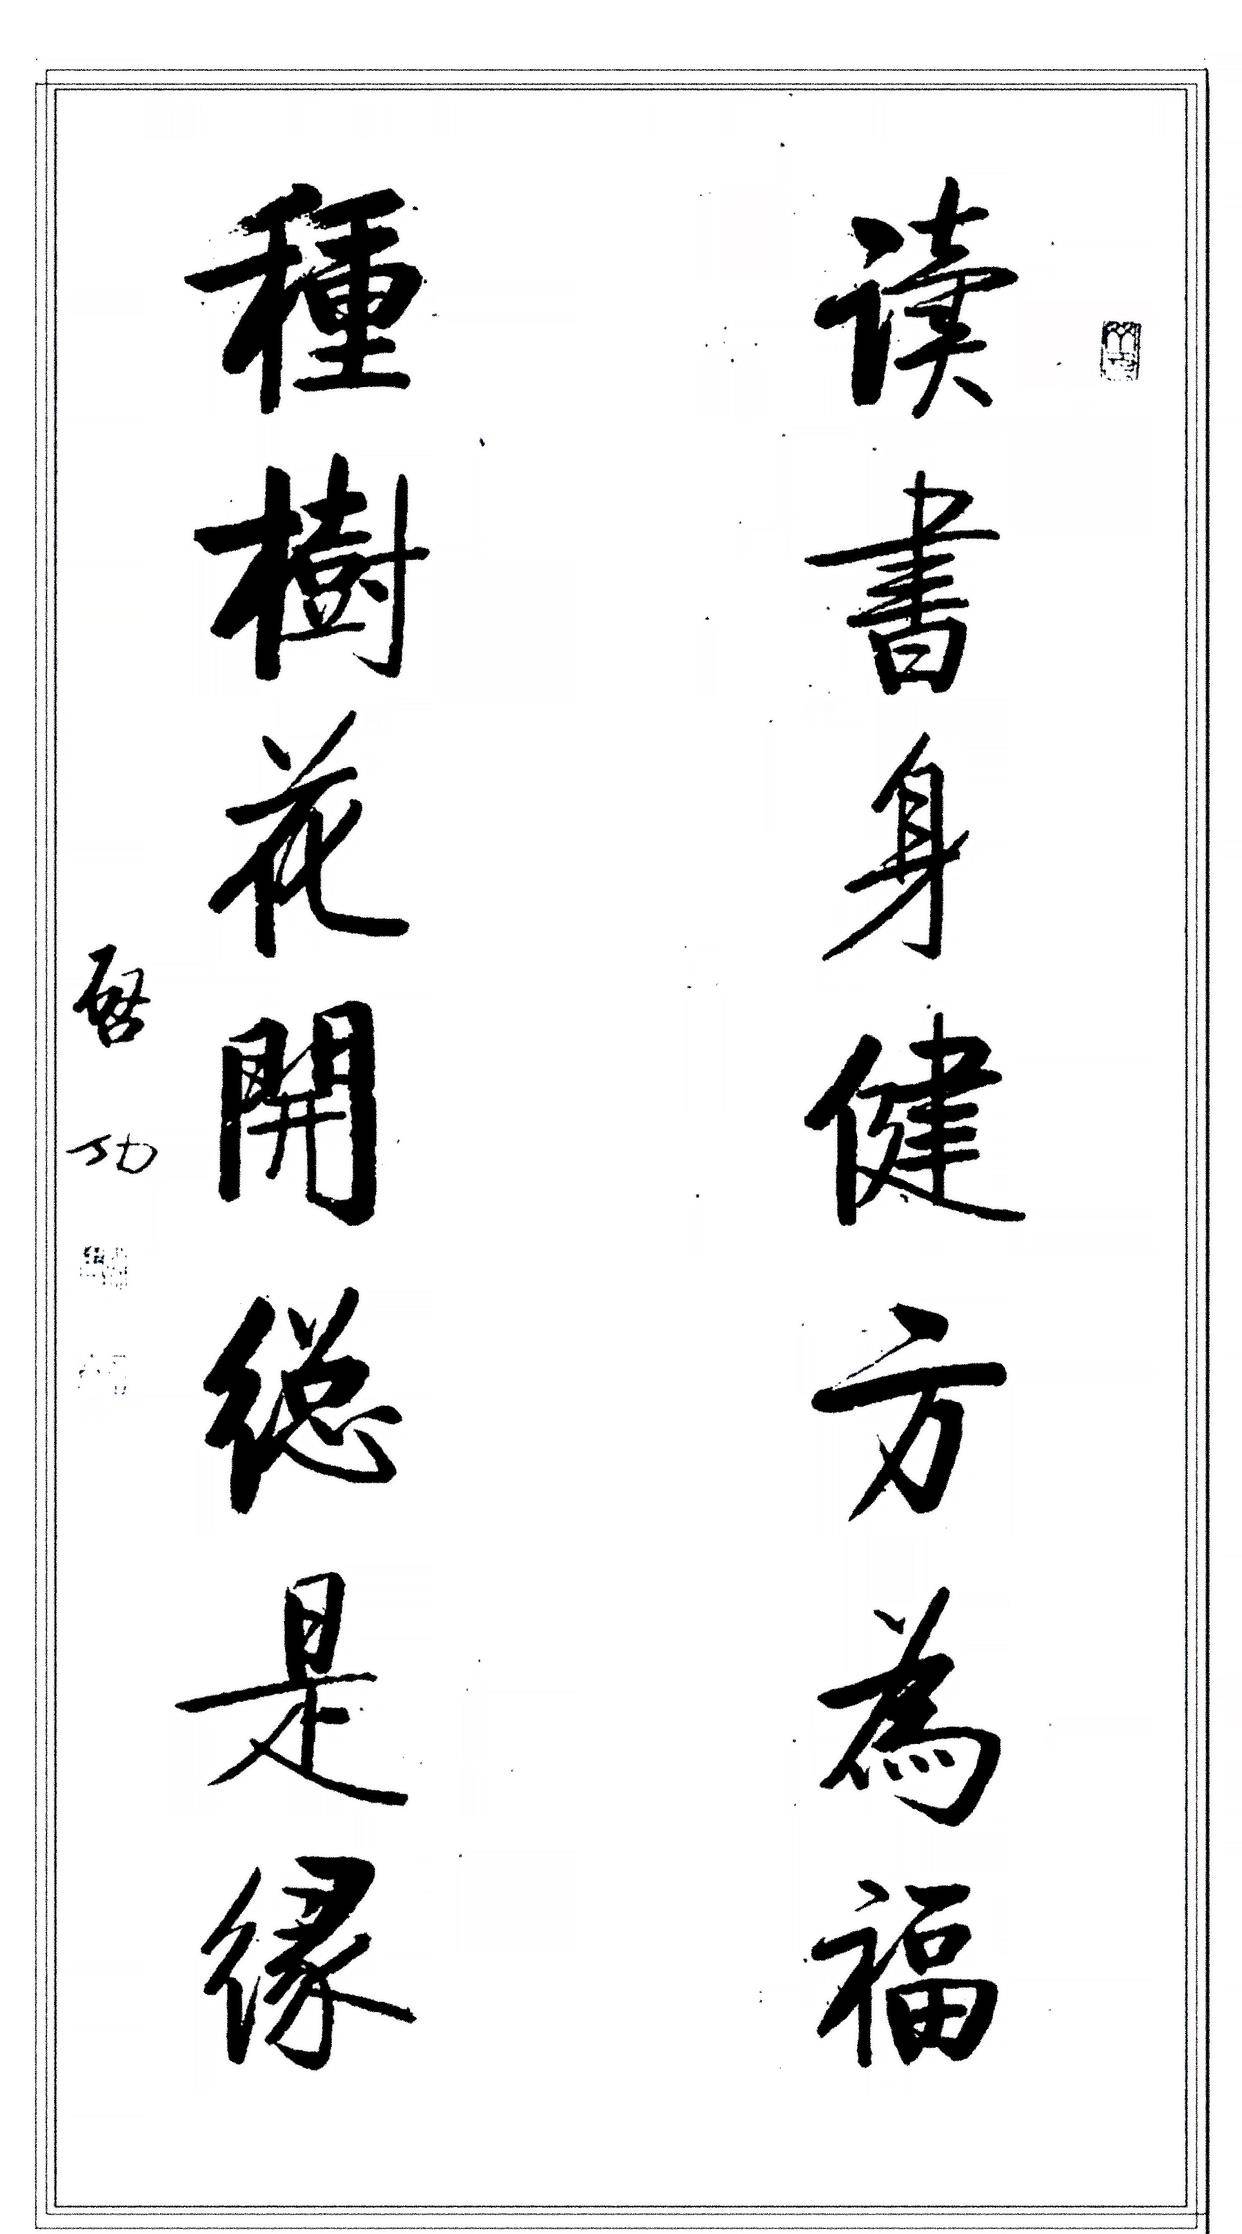 读書身健方為福
種樹花開総是緣
啓功